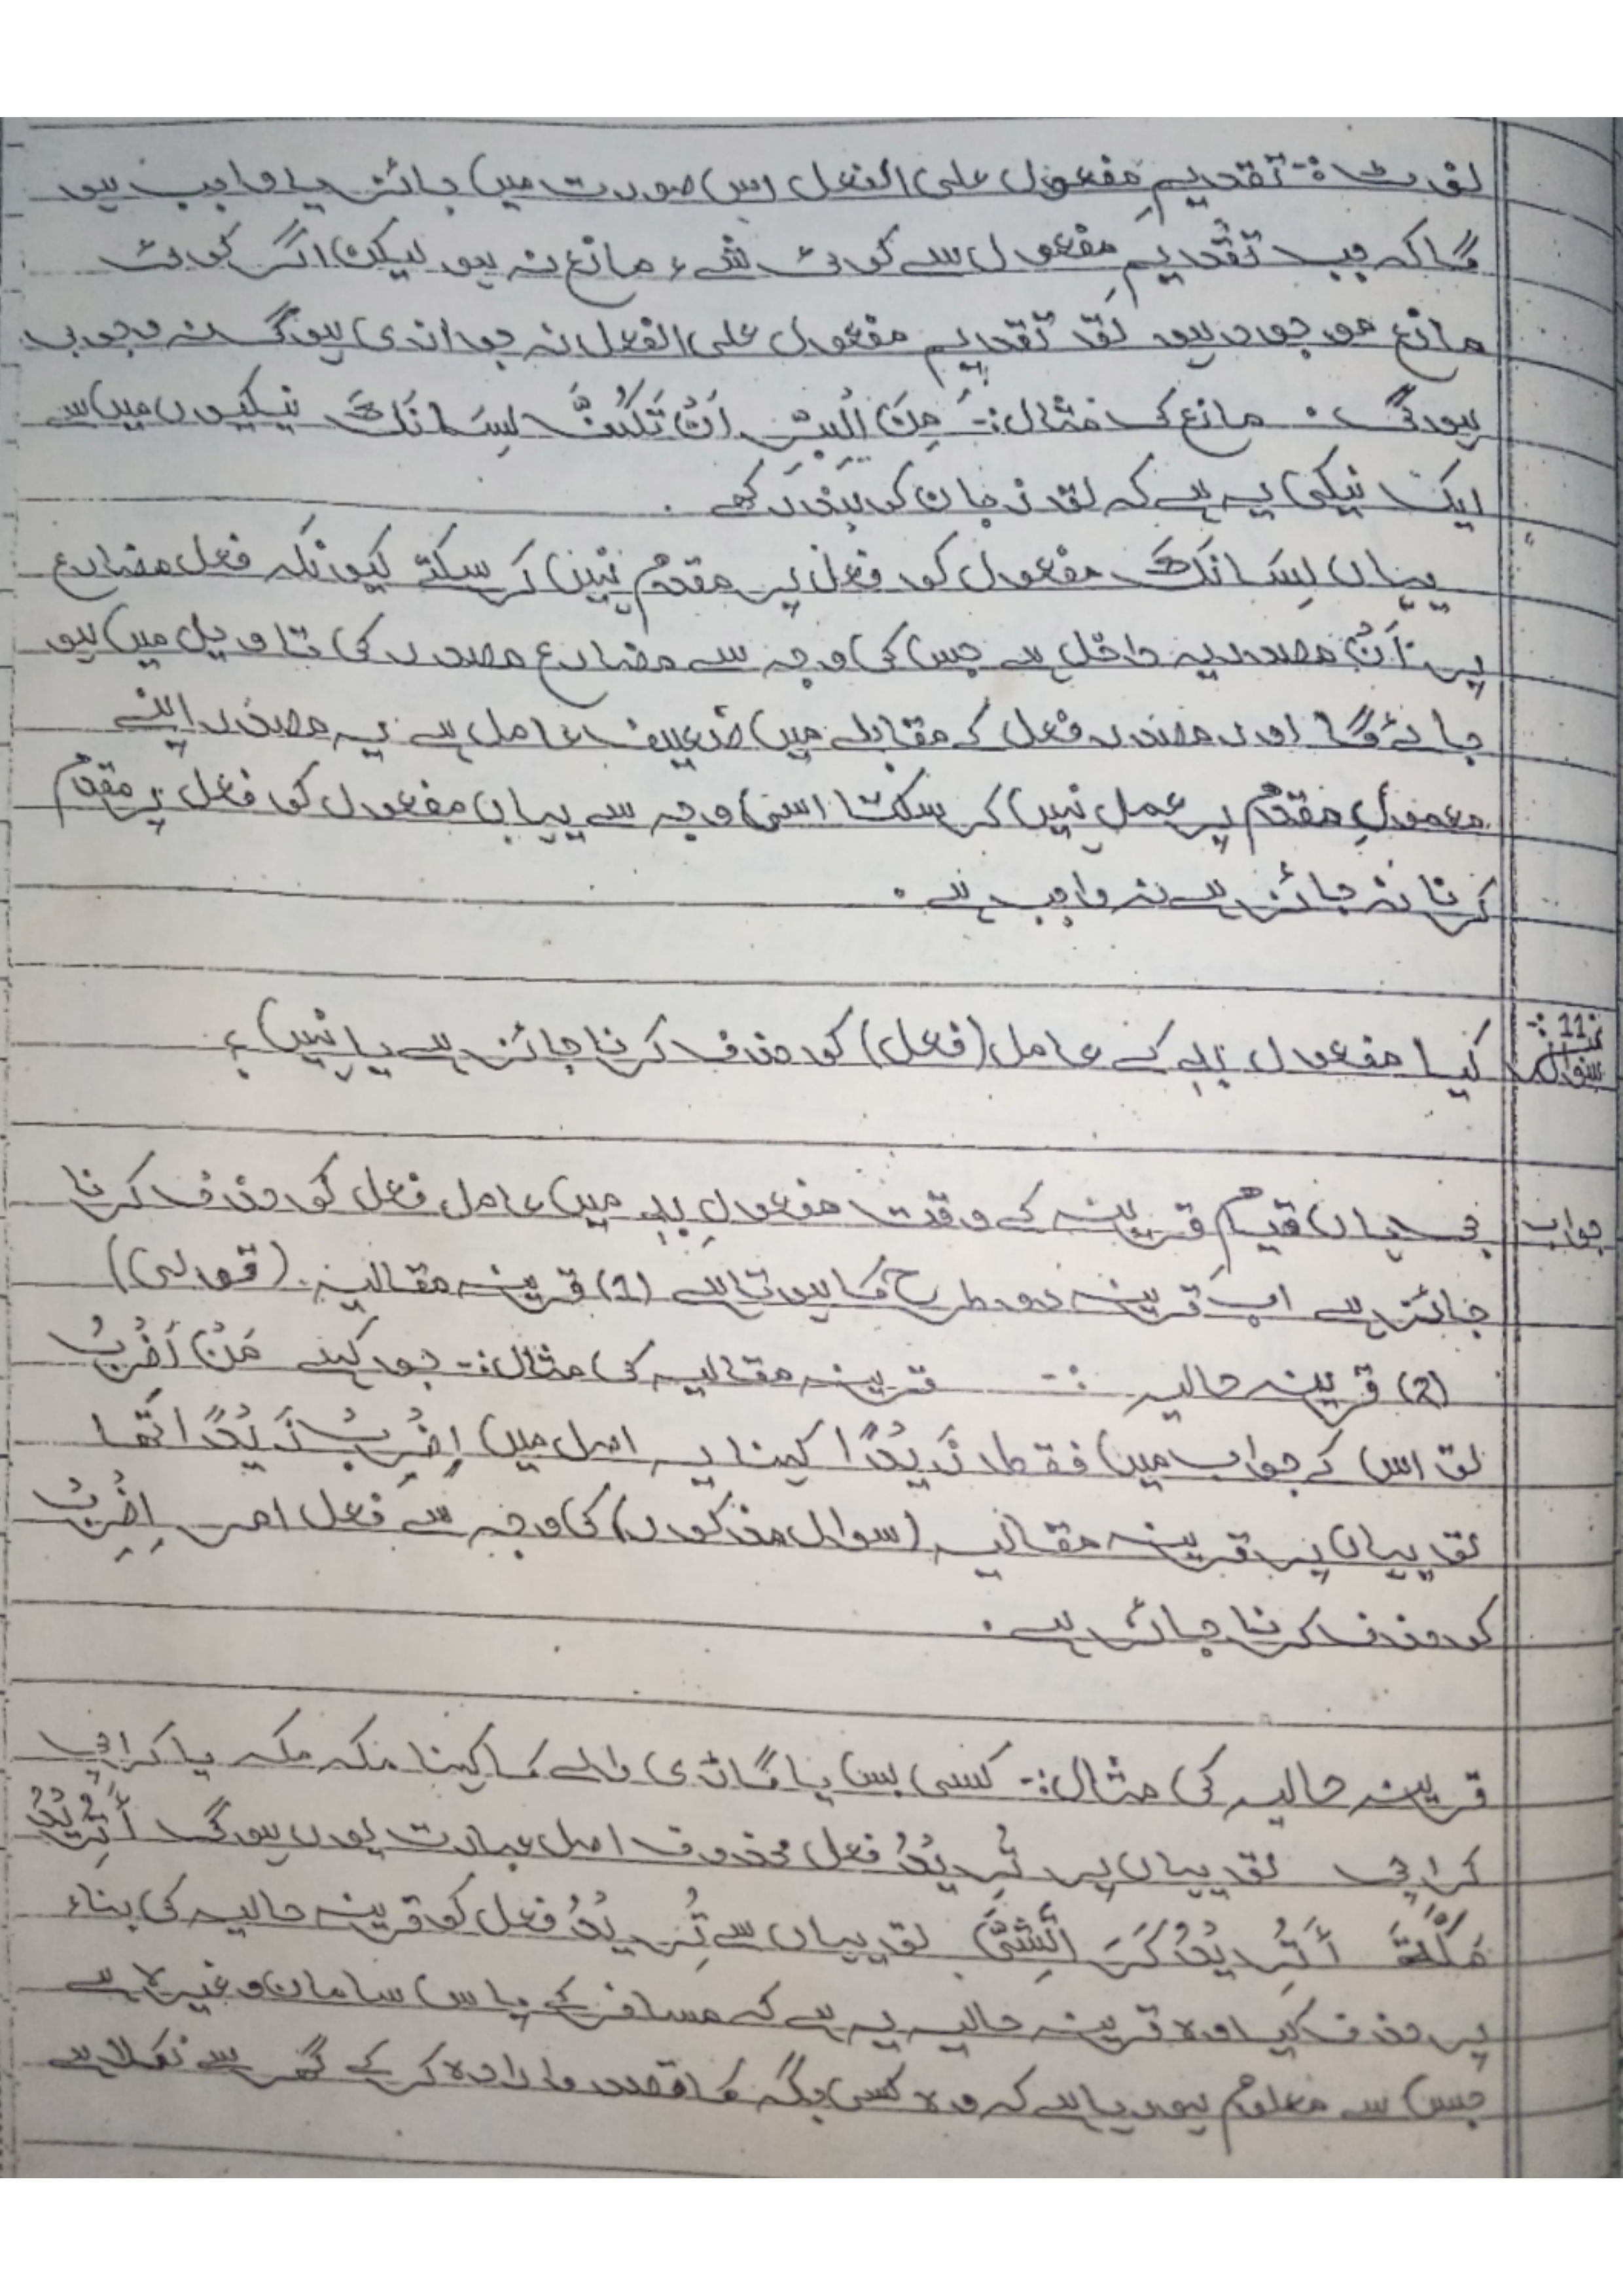 نوٹ:- تقدیمِ مفعول علی الفعل اس صورت میں جائز یا واجب ہو
گا کہ جب تقدیمِ مفعول سے کوئی شیء مانع نہ ہو لیکن اگر کوئی
مانع موجود ہو تو تقدیم مفعول علی الفعل نہ جوازی ہوگی نہ وجوبی
ہوگی۔ مانع کی مثال:- مِنَ الْبِرِّ اَنْ تَكُفَّ لِسَانَكَ نیکیوں میں سے
ایک نیکی یہ ہے کہ تو زبان کو بند رکھے۔
یہاں لِسَانَكَ مفعول کو فعل پر مقدم نہیں کر سکتے کیونکہ فعل مضارع
پر اَنْ مصدریہ داخل ہے جس کی وجہ سے مضارع مصدر کی تاویل میں ہو
جائے گا اور مصدر فعل کے مقابلے میں ضعیف عامل ہے یہ مصدر اپنے
معمولِ مقدم پر عمل نہیں کر سکتا اسی وجہ سے یہاں مفعول کو فعل پر مقدم
کرنا نہ جائز ہے نہ واجب ہے۔
سوال نمبر 11:- کیا مفعول بہٖ کے عامل (فعل) کو حذف کرنا جائز ہے یا نہیں؟
جواب جی ہاں قیامِ قرینہ کے وقت مفعولِ بہٖ میں عامل فعل کو حذف کرنا
جائز ہے اب قرینہ دو طرح کا ہوتا ہے (1) قرینہ مقالیہ (قولی)
(2) قرینہ حالیہ :- قرینہ مقالیہ کی مثال:- جو کہے مَنْ اَضْرِبُ
تو اس کے جواب میں فقط زَیْدًا کہنا یہ اصل میں اِضْرِبْ زَیْدًا تھا
تو یہاں پر قرینہ مقالیہ (سوال مذکور) کی وجہ سے فعل امر اِضْرِبْ
کو حذف کرنا جائز ہے۔
قرینہ حالیہ کی مثال:- کسی بس یا گاڑی والے کا کہنا مکہ مکہ یا کراچی
کراچی تو یہاں پر تُرِیْدُ فعل محذوف اصل عبارت یوں ہوگی أَتُرِیْدُ
مَكَّةَ أَتُرِیْدُ كَرَ اتَّشِیَّ تو یہاں سے تُرِیْدُ فعل کو قرینہ حالیہ کی بناء
پر حذف کیا وہ قرینہ حالیہ یہ ہے کہ مسافر کے پاس سامان وغیرہ ہے
جس سے معلوم ہو رہا ہے کہ وہ کسی جگہ کا قصد و ارادہ کر کے گھر سے نکلا ہے